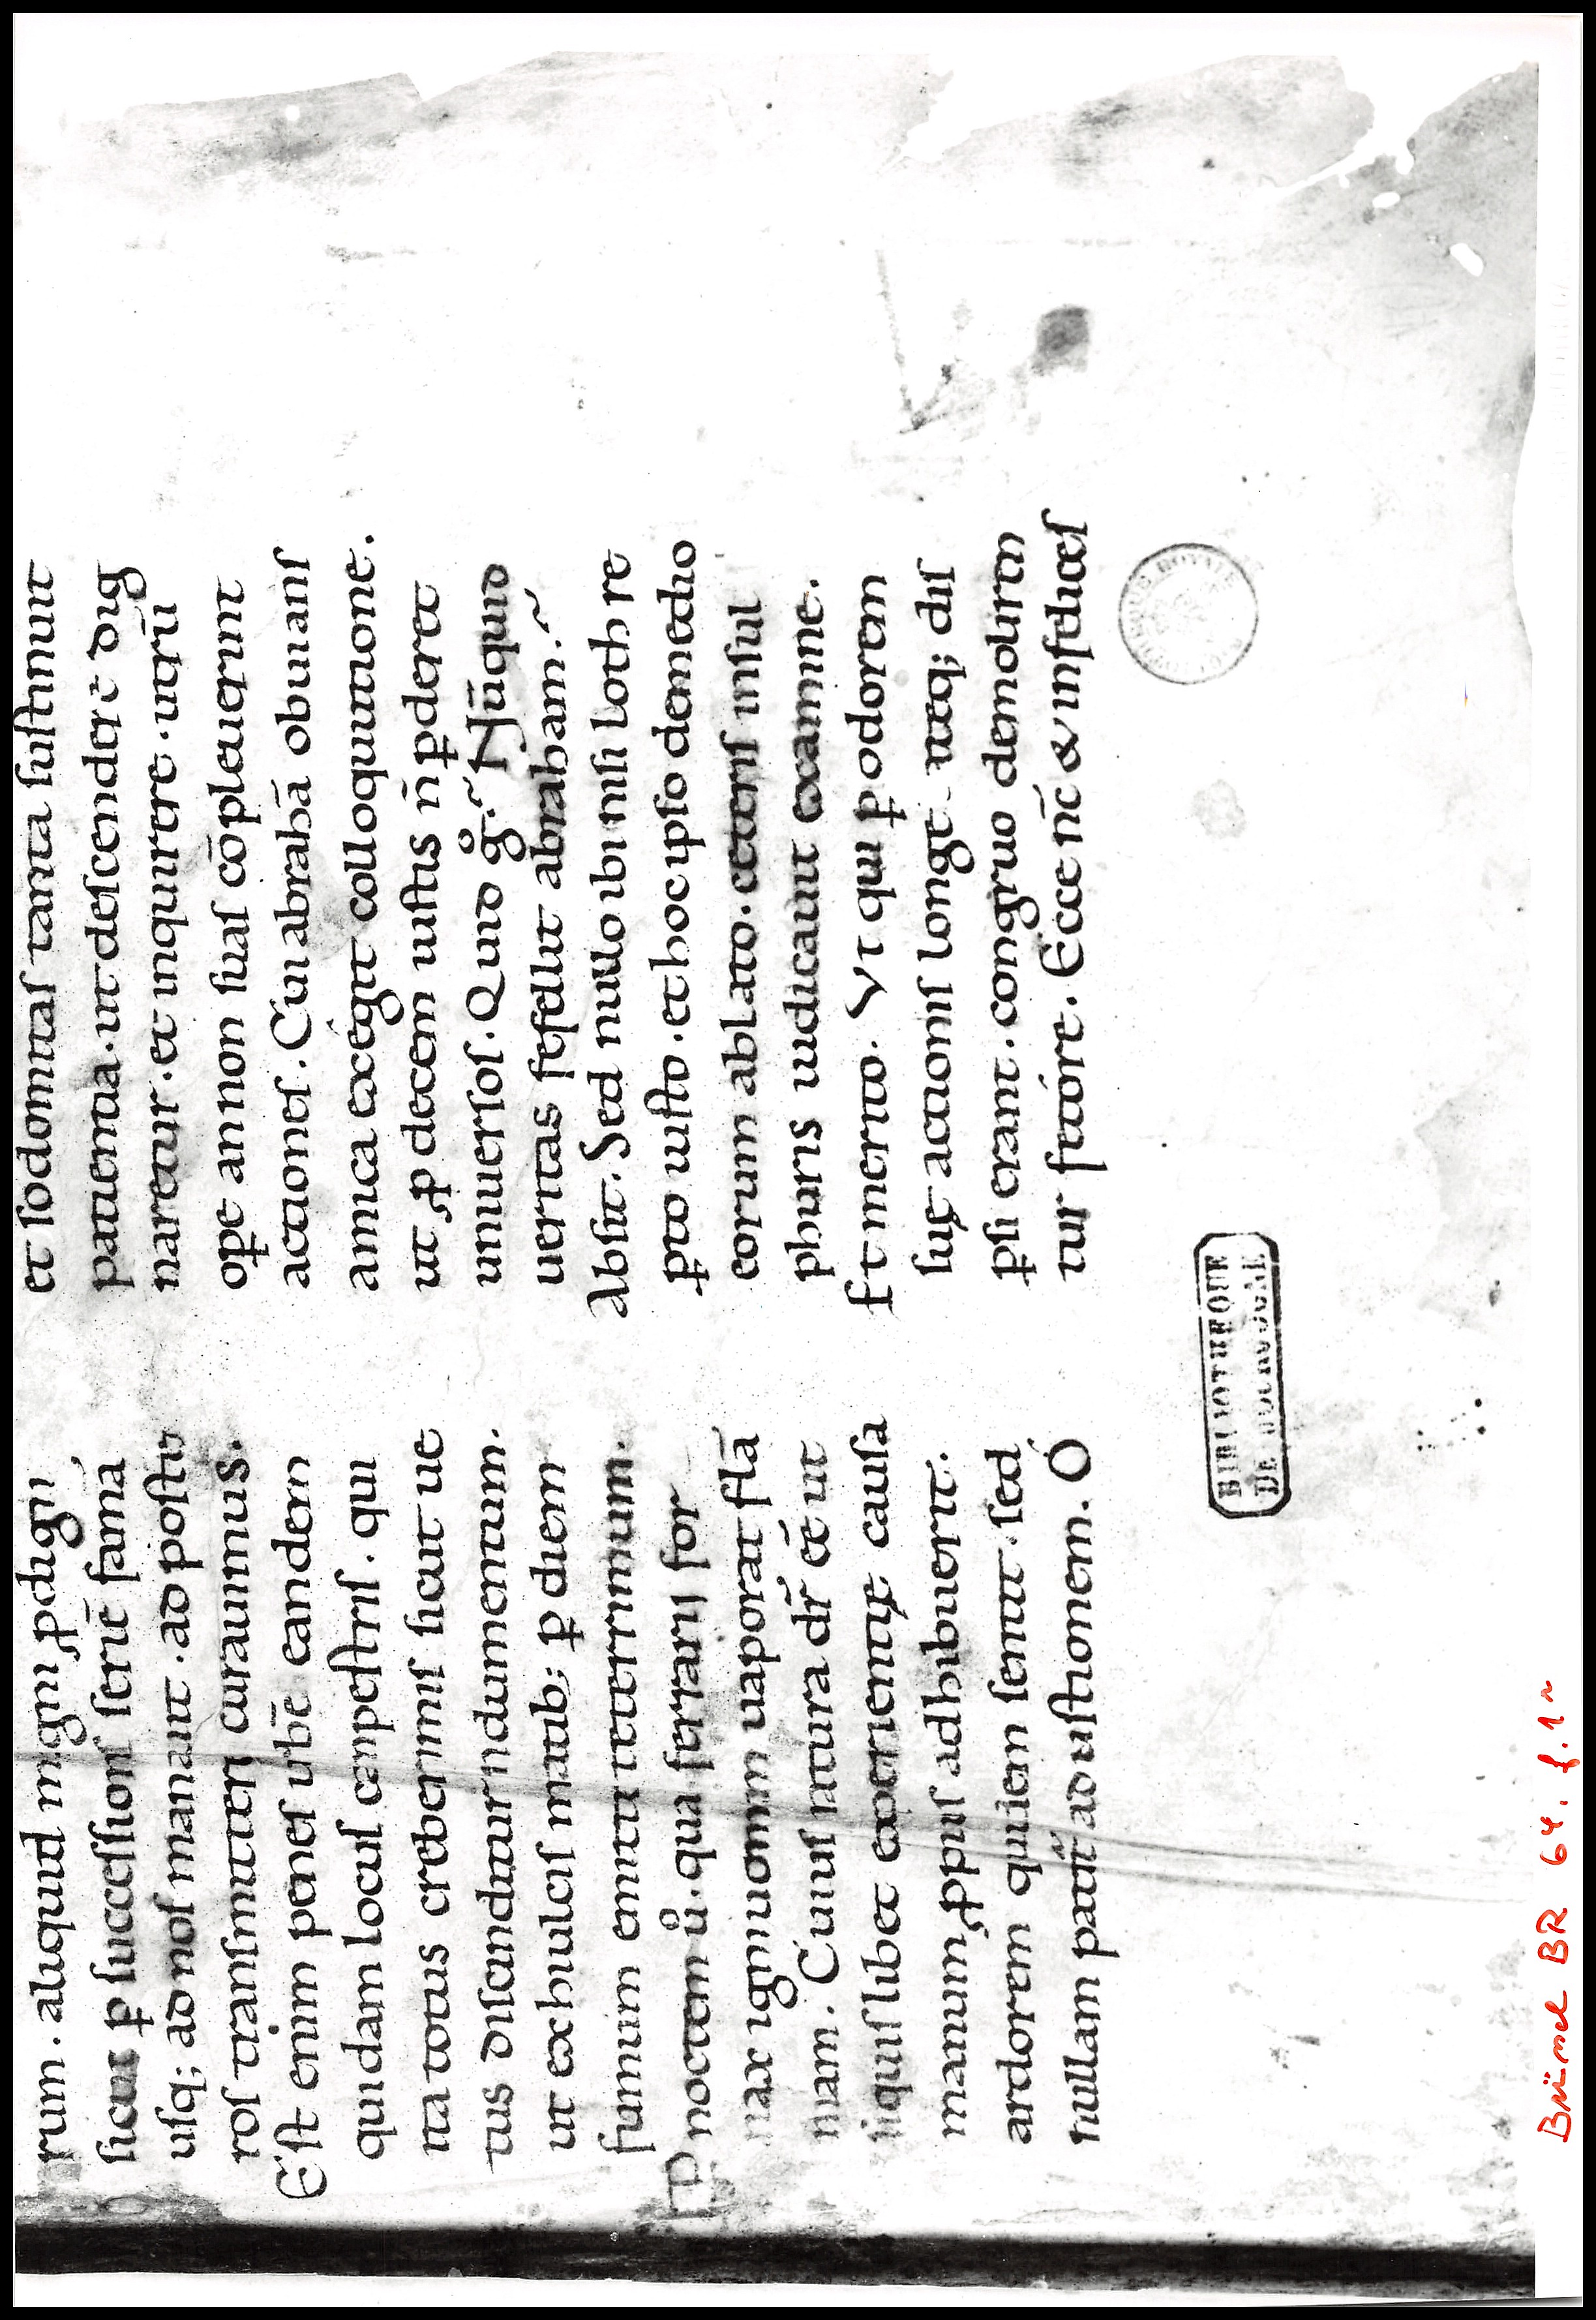 rum. aliquid magni ꝓdigii,
sicut ꝑ successionis seriē fama
usq; ad nos manauit. ad poste
ros transmittere curauimus.
Est enim penes urbē eandem
quidam locus campestris. qui
ita totus creberrimis sicut ue
tus discinditur indumentum.
ut ex hiulcis meatib; ꝑ diem
fumum emittit teterrimum.
Per noctem ů. qua ferrarii for
nax igniuomam uaporat flā
mam. Cuius natura dr̄ eē ut
siquislibet experientię causa
manum ꝓpius adhibuerit.
ardorem quidem sentit. sed
nullam patit᷑ adustionem. O
et sodomitas tanta sustinuit
patientia. ut descender̄e dig
naretur. et inquirere. utrū
ope an non suas cōpleuerint
actiones. Cui abrahā obuians
amica exegit colloquutione.
ut ꝓ decem iustis n̄ ꝑderet
uniuersos. Quid g̊. Nūquid
ueritas fefellit abraham.
Absit. Sed nullo ibi nisi loth re
ꝑto iusto. et hoc ipso de medio
eorum ablato. ceteris insul
phuris iudicauit examine.
Et merito. Vt qui ꝑ odorem
suę actionis longe lateq; dis
ꝑsi erant. congruo demoliren
tur fetore. Ecce nc̄ & infelices
BIBLIOTHEQUE
DE BOURGOGNE
Brüssel BR 64. f.1r